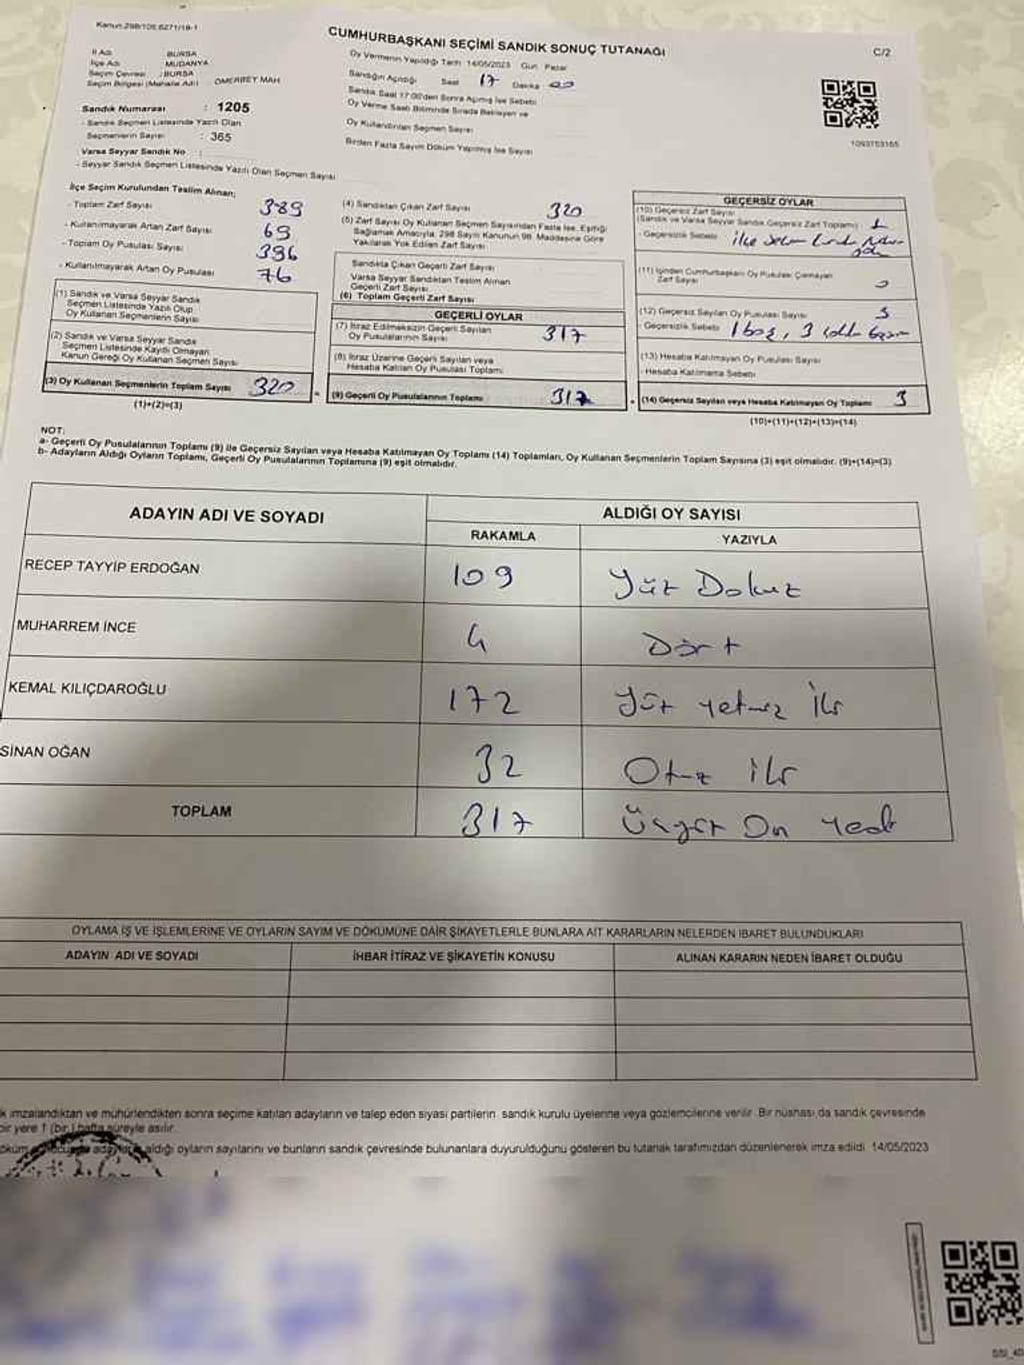 Kanun:298/105;6271/19-1
CUMHURBAŞKANI SEÇİMİ SANDIK SONUÇ TUTANAĞI
C/2
Oy Vermenin Yapıldığı Tarih: 14/05/2023 Gün: Pazar
İl Adı : BURSA
İlçe Adı : MUDANYA
Seçim Çevresi : BURSA
Seçim Bölgesi (Mahalle Adı) : ÖMERBEY MAH
Sandık Numarası : 1205
- Sandık Seçmen Listesinde Yazılı Olan
Seçmenlerin Sayısı : 365
Varsa Seyyar Sandık No :
- Seyyar Sandık Seçmen Listesinde Yazılı Olan Seçmen Sayısı
Sandığın Açıldığı Saat 17 Dakika 00
Sandık Saat 17:00'den Sonra Açılmış İse Sebebi
Oy Verme Saati Bitiminde Sırada Bekleyen ve
Oy Kullandırılan Seçmen Sayısı
Birden Fazla Sayım Döküm Yapılmış İse Sayısı
1093753165
İlçe Seçim Kurulundan Teslim Alınan;
- Toplam Zarf Sayısı 389
- Kullanılmayarak Artan Zarf Sayısı 69
- Toplam Oy Pusulası Sayısı 396
- Kullanılmayarak Artan Oy Pusulası 76
(1) Sandık ve Varsa Seyyar Sandık
Seçmen Listesinde Yazılı Olup
Oy Kullanan Seçmenlerin Sayısı
(2) Sandık ve Varsa Seyyar Sandık
Seçmen Listesinde Kayıtlı Olmayan
Kanun Gereği Oy Kullanan Seçmen Sayısı
(3) Oy Kullanan Seçmenlerin Toplam Sayısı 320
(1)+(2)=(3)
(4) Sandıktan Çıkan Zarf Sayısı 320
(5) Zarf Sayısı Oy Kullanan Seçmen Sayısından Fazla İse, Eşitliği
Sağlamak Amacıyla, 298 Sayılı Kanunun 98. Maddesine Göre
Yakılarak Yok Edilen Zarf Sayısı
Sandıkta Çıkan Geçerli Zarf Sayısı
Varsa Seyyar Sandıktan Teslim Alınan
Geçerli Zarf Sayısı
(6) Toplam Geçerli Zarf Sayısı
GEÇERLİ OYLAR
(7) İtiraz Edilmeksizin Geçerli Sayılan
Oy Pusulalarının Sayısı 317
(8) İtiraz Üzerine Geçerli Sayılan veya
Hesaba Katılan Oy Pusulası Toplamı
(9) Geçerli Oy Pusulalarının Toplamı 317
GEÇERSİZ OYLAR
(10) Geçersiz Zarf Sayısı
(Sandık ve Varsa Seyyar Sandık Geçersiz Zarf Toplamı)
- Geçersizlik Sebebi
(11) İçinden Cumhurbaşkanı Oy Pusulası Çıkmayan
Zarf Sayısı
(12) Geçersiz Sayılan Oy Pusulası Sayısı 3
- Geçersizlik Sebebi 1 boş, 3
(13) Hesaba Katılmayan Oy Pusulası Sayısı
- Hesaba Katılmama Sebebi
(14) Geçersiz Sayılan veya Hesaba Katılmayan Oy Toplamı 3
(10)+(11)+(12)+(13)=(14)
NOT:
a- Geçerli Oy Pusulalarının Toplamı (9) ile Geçersiz Sayılan veya Hesaba Katılmayan Oy Toplamı (14) Toplamları, Oy Kullanan Seçmenlerin Toplam Sayısına (3) eşit olmalıdır. (9)+(14)=(3)
b- Adayların Aldığı Oyların Toplamı, Geçerli Oy Pusulalarının Toplamına (9) eşit olmalıdır.
ADAYIN ADI VE SOYADI
ALDIĞI OY SAYISI
RAKAMLA YAZIYLA
RECEP TAYYİP ERDOĞAN 109 Yüz Dokuz
MUHARREM İNCE 4 Dört
KEMAL KILIÇDAROĞLU 172 Yüz yetmiş iki
SİNAN OĞAN 32 Otuz iki
TOPLAM 317 Üçyüz On yedi
OYLAMA İŞ VE İŞLEMLERİNE VE OYLARIN SAYIM VE DÖKÜMÜNE DAİR ŞİKAYETLERLE BUNLARA AİT KARARLARIN NELERDEN İBARET BULUNDUKLARI
ADAYIN ADI VE SOYADI İHBAR İTİRAZ VE ŞİKAYETİN KONUSU ALINAN KARARIN NEDEN İBARET OLDUĞU
k imzalandıktan ve mühürlendikten sonra seçime katılan adayların ve talep eden siyasi partilerin sandık kurulu üyelerine veya gözlemcilerine verilir. Bir nüshası da sandık çevresinde
bir yere 1 (bir) hafta süreyle asılır.
aldığı oyların sayılarını ve bunların sandık çevresinde bulunanlara duyurulduğunu gösteren bu tutanak tarafımızdan düzenlenerek imza edildi. 14/05/2023